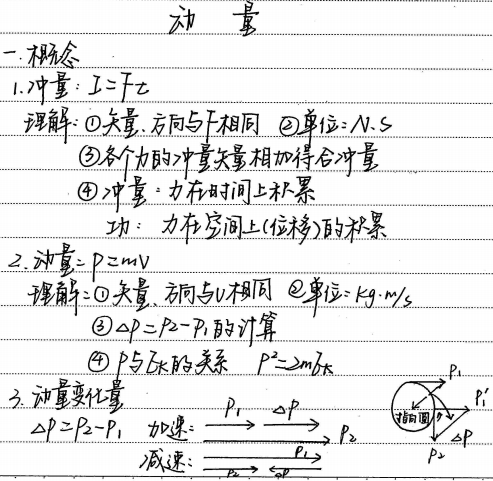 动 量
一.概念
1.冲量:I=Ft
理解:①矢量、方向与F相同 ②单位:N.S
③各个力的冲量矢量相加得合冲量
④冲量:力在时间上积累
功:力在空间上(位移)的积累
2.动量=P=mv
理解:①矢量、方向与v相同 ②单位:kg·m/s
③△P=P2-P1的计算
④P与Ek的关系 P²=2mEk
3.动量变化量
△P=P2-P1 加速: P1 △P P2
减速: P1 P2 △P
P1 P1' 指向圆 P2 △P